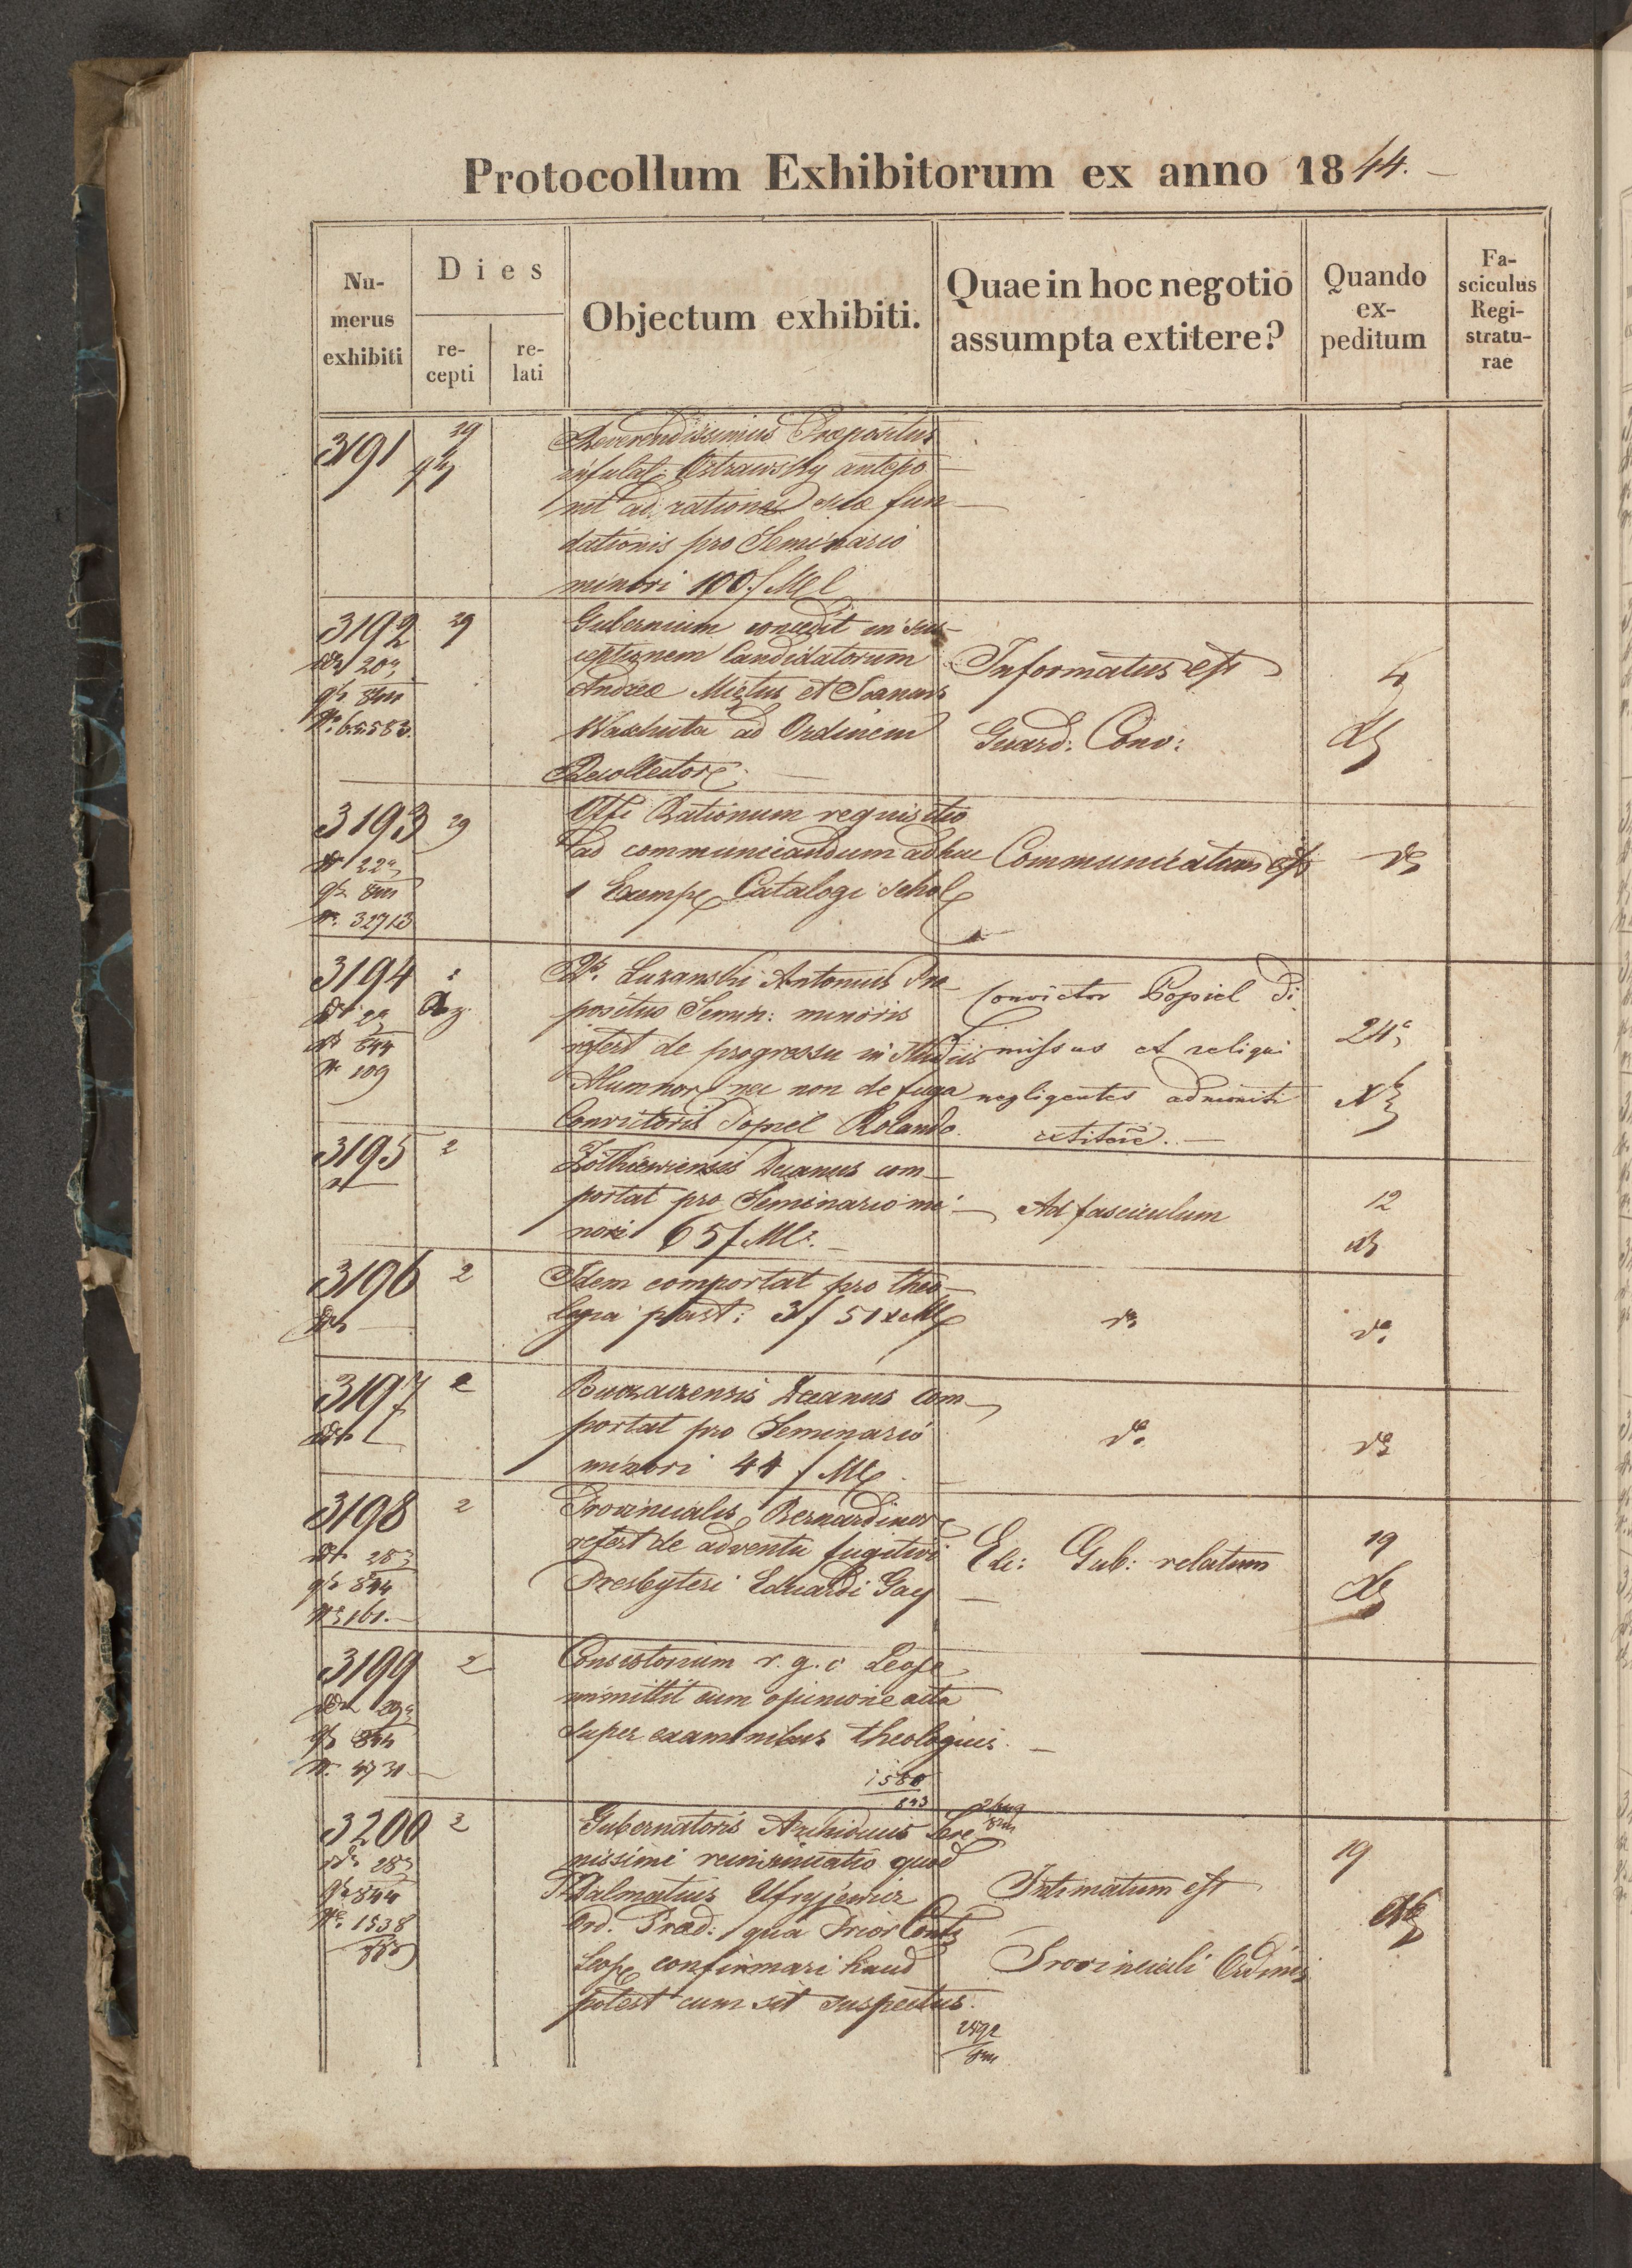 Protocollum Exhibitorum ex anno 1844.
Nu-
merus
exhibiti
Dies
re-
cepti
re-
lati
Objectum exhibiti.
Quae in hoc negotio
assumpta extitere?
Quando
ex-
peditum
Fa-
sciculus
Regi-
stratu-
rae
3191
29
Reverendissimus Praepositus
infulat: Ostrawsky antepo-
nit ad rationes suae fun-
dationis pro Seminario
minori 100 f
3192
29
Gubernium concedit in sus-
ceptionem Candidatorum
Andreae Miętus et Joannis
Waxhuta ad Ordinem
Recollector
Informatus est
Guard: Conv:
3193
29
32713
Offi Rationum requisitio
ad communicandum adhuc
1 Exemp Catalogi schol
Communicatum est
3194
844
N 109
Luzanski Antonius Prae-
positus Semin: minoris
refert de progressu in studiis
Alumnor nec non de fuga
Convictoris Popiel Rolando.
Convictor Popiel di-
missus et reliqui
negligentes admoniti
extitere.
24
3195
2
Zolkiewiensis Decanus com-
portat pro Seminario mi-
nori 65 f
Ad fasciculum
12
3196
2
Idem comportat pro theo-
logia past: 3 f 51 x
3197
2
Buczaczensis Decanus com-
portat pro Seminario
minori 44 f
3198
2
28
844
161.
Provincialis Bernardinor
refert de adventu fugitivi
Presbyteri Eduardi Gay
Exc: Gub: relatum
19
3199
2
844
Consistorium r. g. c Leop
remittit cum opinione acta
super examinibus theologicis.
3200
2
28
844
1538
Gubernatoris Archiducis Sere-
nissimi reinsinuatio quod
Dalmatius Ufryjewicz
Ord. Praed: qua Prior Cont
Leop confirmari haud
potest cum sit suspectus.
Intimatum est
Provinciali Ordinis
19